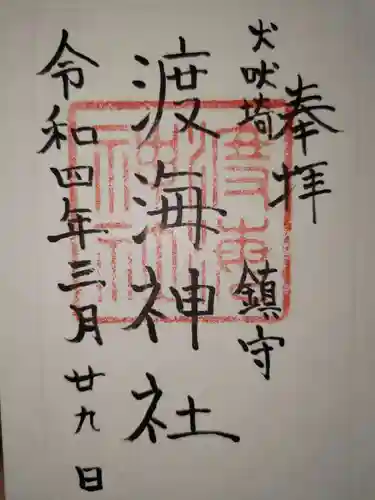 奉拝
犬吠埼 鎮守
渡海神社
令和四年三月廿九日
渡海神社